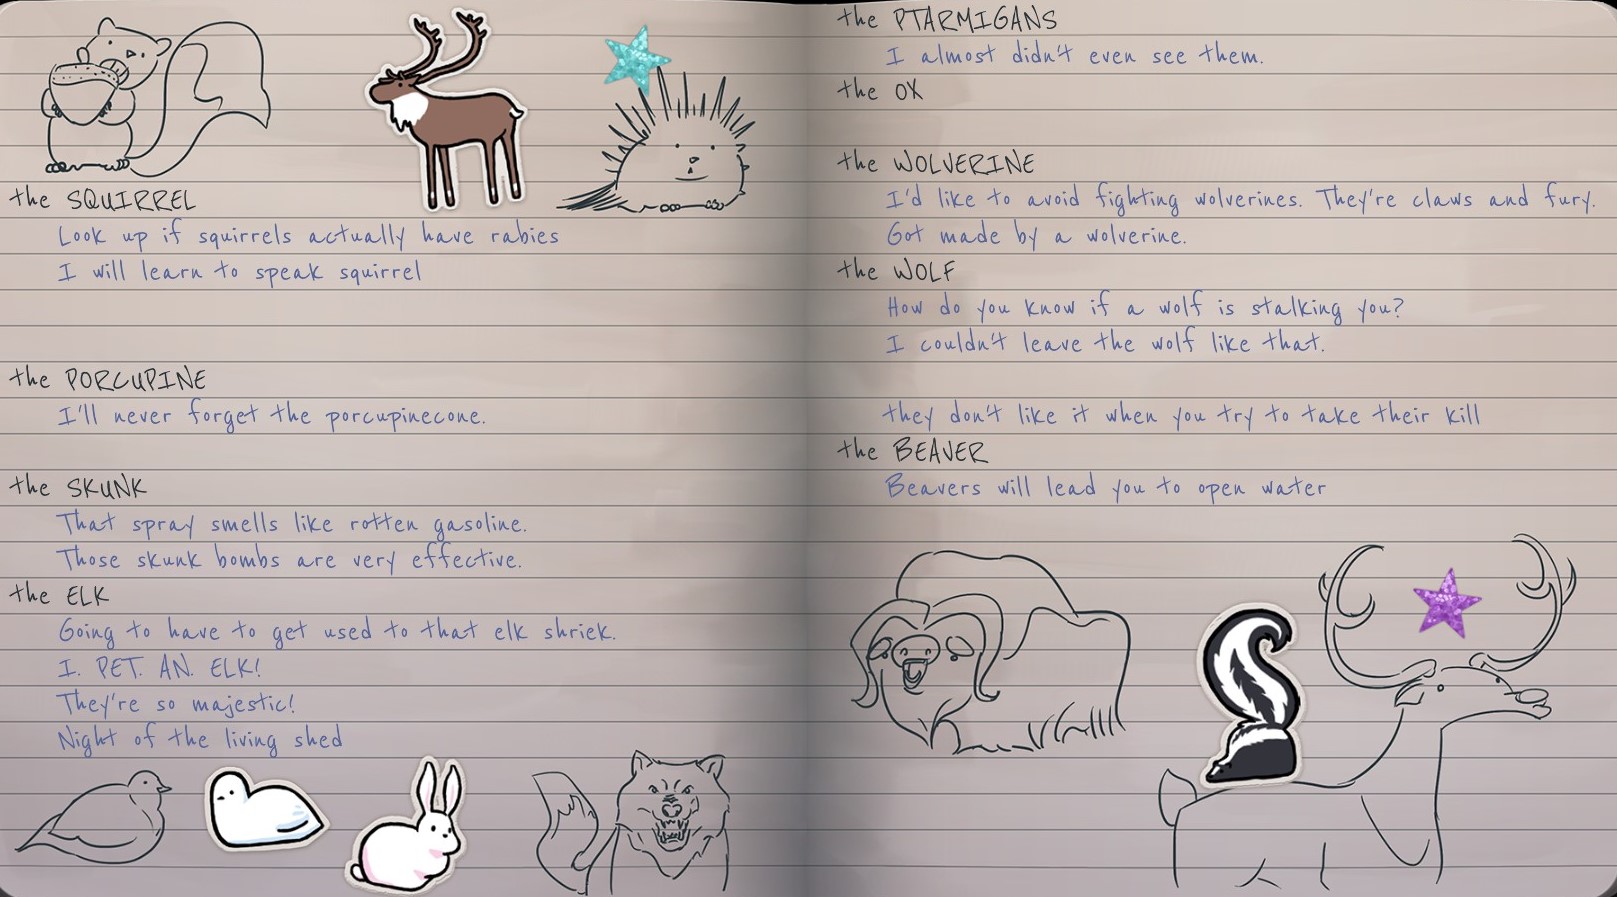 the SQUIRREL
Look up if squirrels actually have rabies
I will learn to speak squirrel
the PORCUPINE
I'll never forget the porcupinecone.
the SKUNK
That spray smells like rotten gasoline.
Those skunk bombs are very effective.
the ELK
Going to have to get used to that elk shriek.
I. PET. AN. ELK!
They're so majestic!
Night of the living shed
the PTARMIGANS
I almost didn't even see them.
the OX
the WOLVERINE
I'd like to avoid fighting wolverines. They're claws and fury.
Got made by a wolverine.
the WOLF
How do you know if a wolf is stalking you?
I couldn't leave the wolf like that.
they don't like it when you try to take their kill
the BEAVER
Beavers will lead you to open water